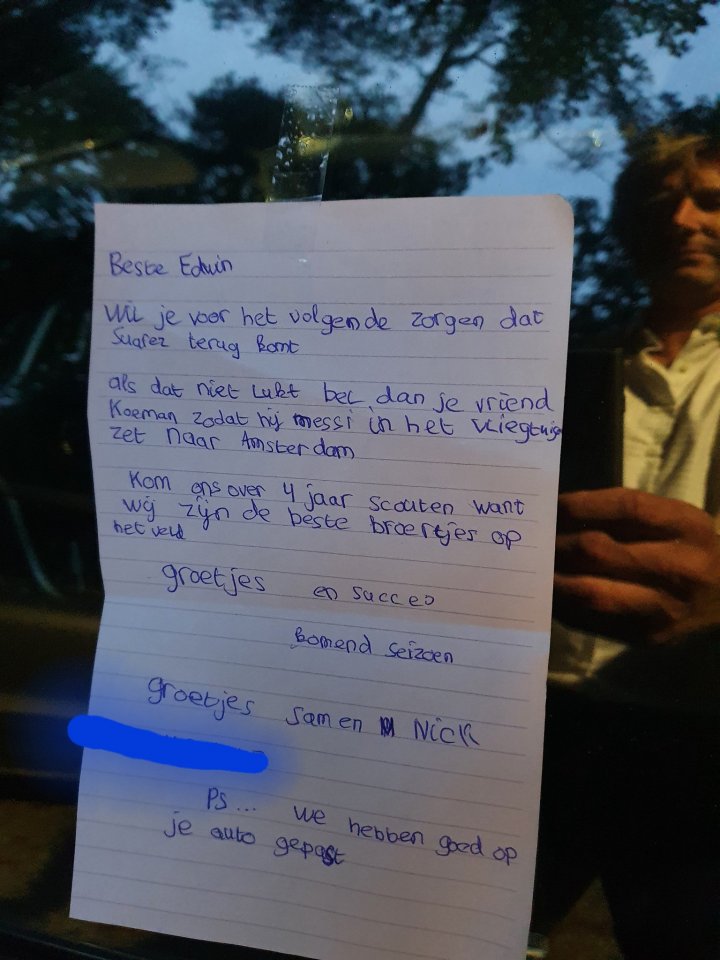 Beste Edwin
Wil je voor het volgende zorgen dat
Suarez terug komt
als dat niet lukt bel dan je vriend
Koeman zodat hij messi in het vliegtuig
zet naar Amsterdam
Kom ons over 4 jaar scouten want
wij zijn de beste broertjes op
het veld
groetjes en succes
komend seizoen
groetjes samen Nick
PS... we hebben goed op
je auto gepast